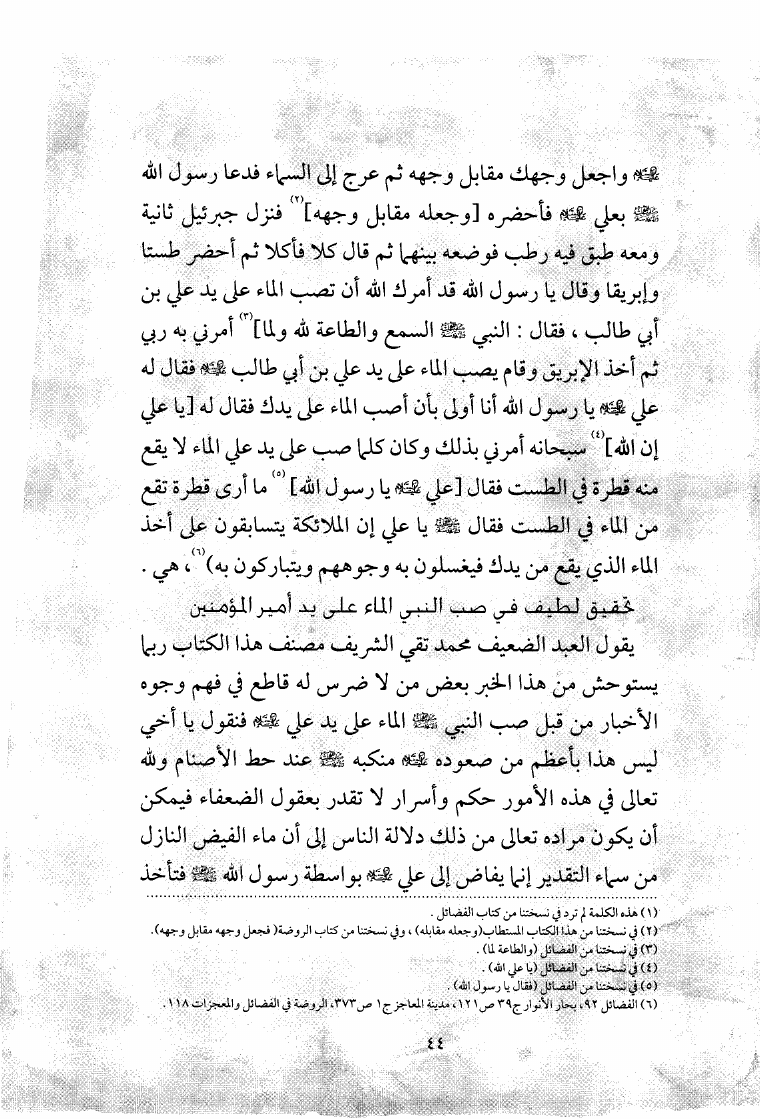 ﷺ واجعل وجهك مقابل وجهه ثم عرج إلى السماء فدعا رسول الله
ﷺ بعلي عليه السلام فأحضره [وجعله مقابل وجهه](٢) فنزل جبرئيل ثانية
ومعه طبق فيه رطب فوضعه بينهما ثم قال كلا فأكلا ثم أحضر طستا
وإبريقا وقال يا رسول الله قد أمرك الله أن تصب الماء على يد علي بن
أبي طالب ، فقال : النبي ﷺ السمع والطاعة لله ولما](٣) أمرني به ربي
ثم أخذ الإبريق وقام يصب الماء على يد علي بن أبي طالب عليه السلام فقال له
علي عليه السلام يا رسول الله أنا أولى بأن أصب الماء على يدك فقال له [يا علي
إن الله](٤) سبحانه أمرني بذلك وكان كلما صب على يد علي الماء لا يقع
منه قطرة في الطست فقال [علي عليه السلام يا رسول الله](٥) ما أرى قطرة تقع
من الماء في الطست فقال ﷺ يا علي إن الملائكة يتسابقون على أخذ
الماء الذي يقع من يدك فيغسلون به وجوههم ويتباركون به)(٦)، هي .
تحقيق لطيف في صب النبي الماء على يد أمير المؤمنين
يقول العبد الضعيف محمد تقي الشريف مصنف هذا الكتاب ربما
يستوحش من هذا الخبر بعض من لا ضرس له قاطع في فهم وجوه
الأخبار من قبل صب النبي ﷺ الماء على يد علي عليه السلام فنقول يا أخي
ليس هذا بأعظم من صعوده عليه السلام منكبه ﷺ عند حط الأصنام ولله
تعالى في هذه الأمور حكم وأسرار لا تقدر بعقول الضعفاء فيمكن
أن يكون مراده تعالى من ذلك دلالة الناس إلى أن ماء الفيض النازل
من سماء التقدير إنما يفاض إلى علي عليه السلام بواسطة رسول الله ﷺ فتأخذ
(١) هذه الكلمة لم ترد في نسختنا من كتاب الفضائل .
(٢) في نسختنا من هذا الكتاب المستطاب(وجعله مقابله) ، وفي نسختنا من كتاب الروضة( فجعل وجهه مقابل وجهه).
(٣) في نسختنا من الفضائل (والطاعة لما) .
(٤) في نسختنا من الفضائل (يا علي الله) .
(٥) في نسختنا من الفضائل (فقال يا رسول الله) .
(٦) الفضائل ٩٢، بحار الأنوار ج٣٩ ص١٢١، مدينة المعاجز ج١ ص٣٧٣، الروضة في الفضائل والمعجزات ١١٨ .
٤٤